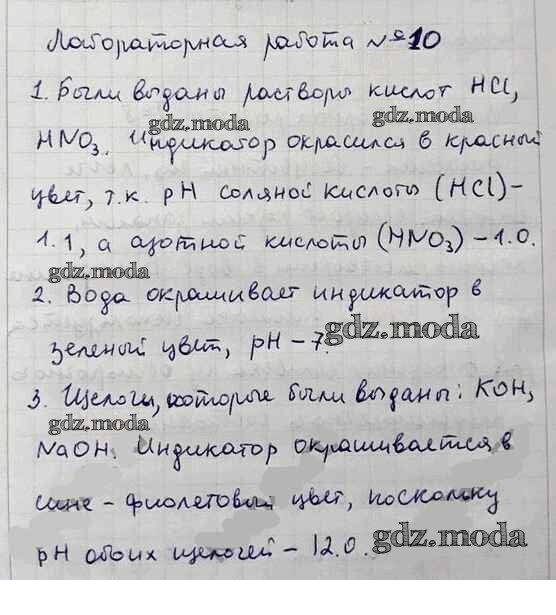 Лабораторная работа №10
1. Были выданы растворы кислот HCl,
gdz.moda
gdz.moda
HNO3. Индикатор окрасился в красный
цвет, т.к. pH соляной кислоты (HCl)-
1.1, а азотной кислоты (HNO3) - 1.0.
gdz.moda
2. Вода окрашивает индикатор в
gdz.moda
зеленый цвет, pH - 7.
3. Щелочи, которые были выданы: KOH,
gdz.moda
NaOH. Индикатор окрашивается в
сине - фиолетовый цвет, поскольку
gdz.moda
pH обоих щелочей - 12.0.